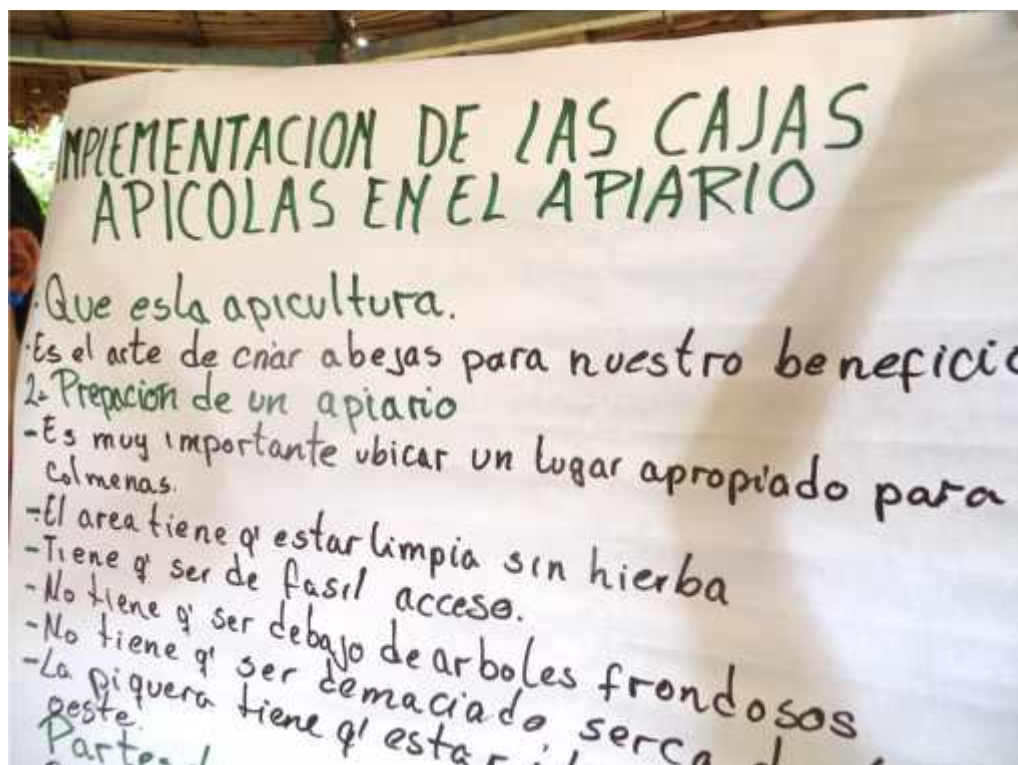 IMPLEMENTACION DE LAS CAJAS
APICOLAS EN EL APIARIO
. Que es la apicultura.
. Es el arte de criar abejas para nuestro beneficio
2- Prepacion de un apiario
- Es muy importante ubicar un lugar apropiado para
Colmenas.
- El area tiene q' estar limpia sin hierba
- Tiene q' ser de fasil acceso.
- No tiene q' ser debajo de arboles frondosos
- No tiene q' ser demaciado serca
- La piquera tiene q' estar
oeste.
Partes